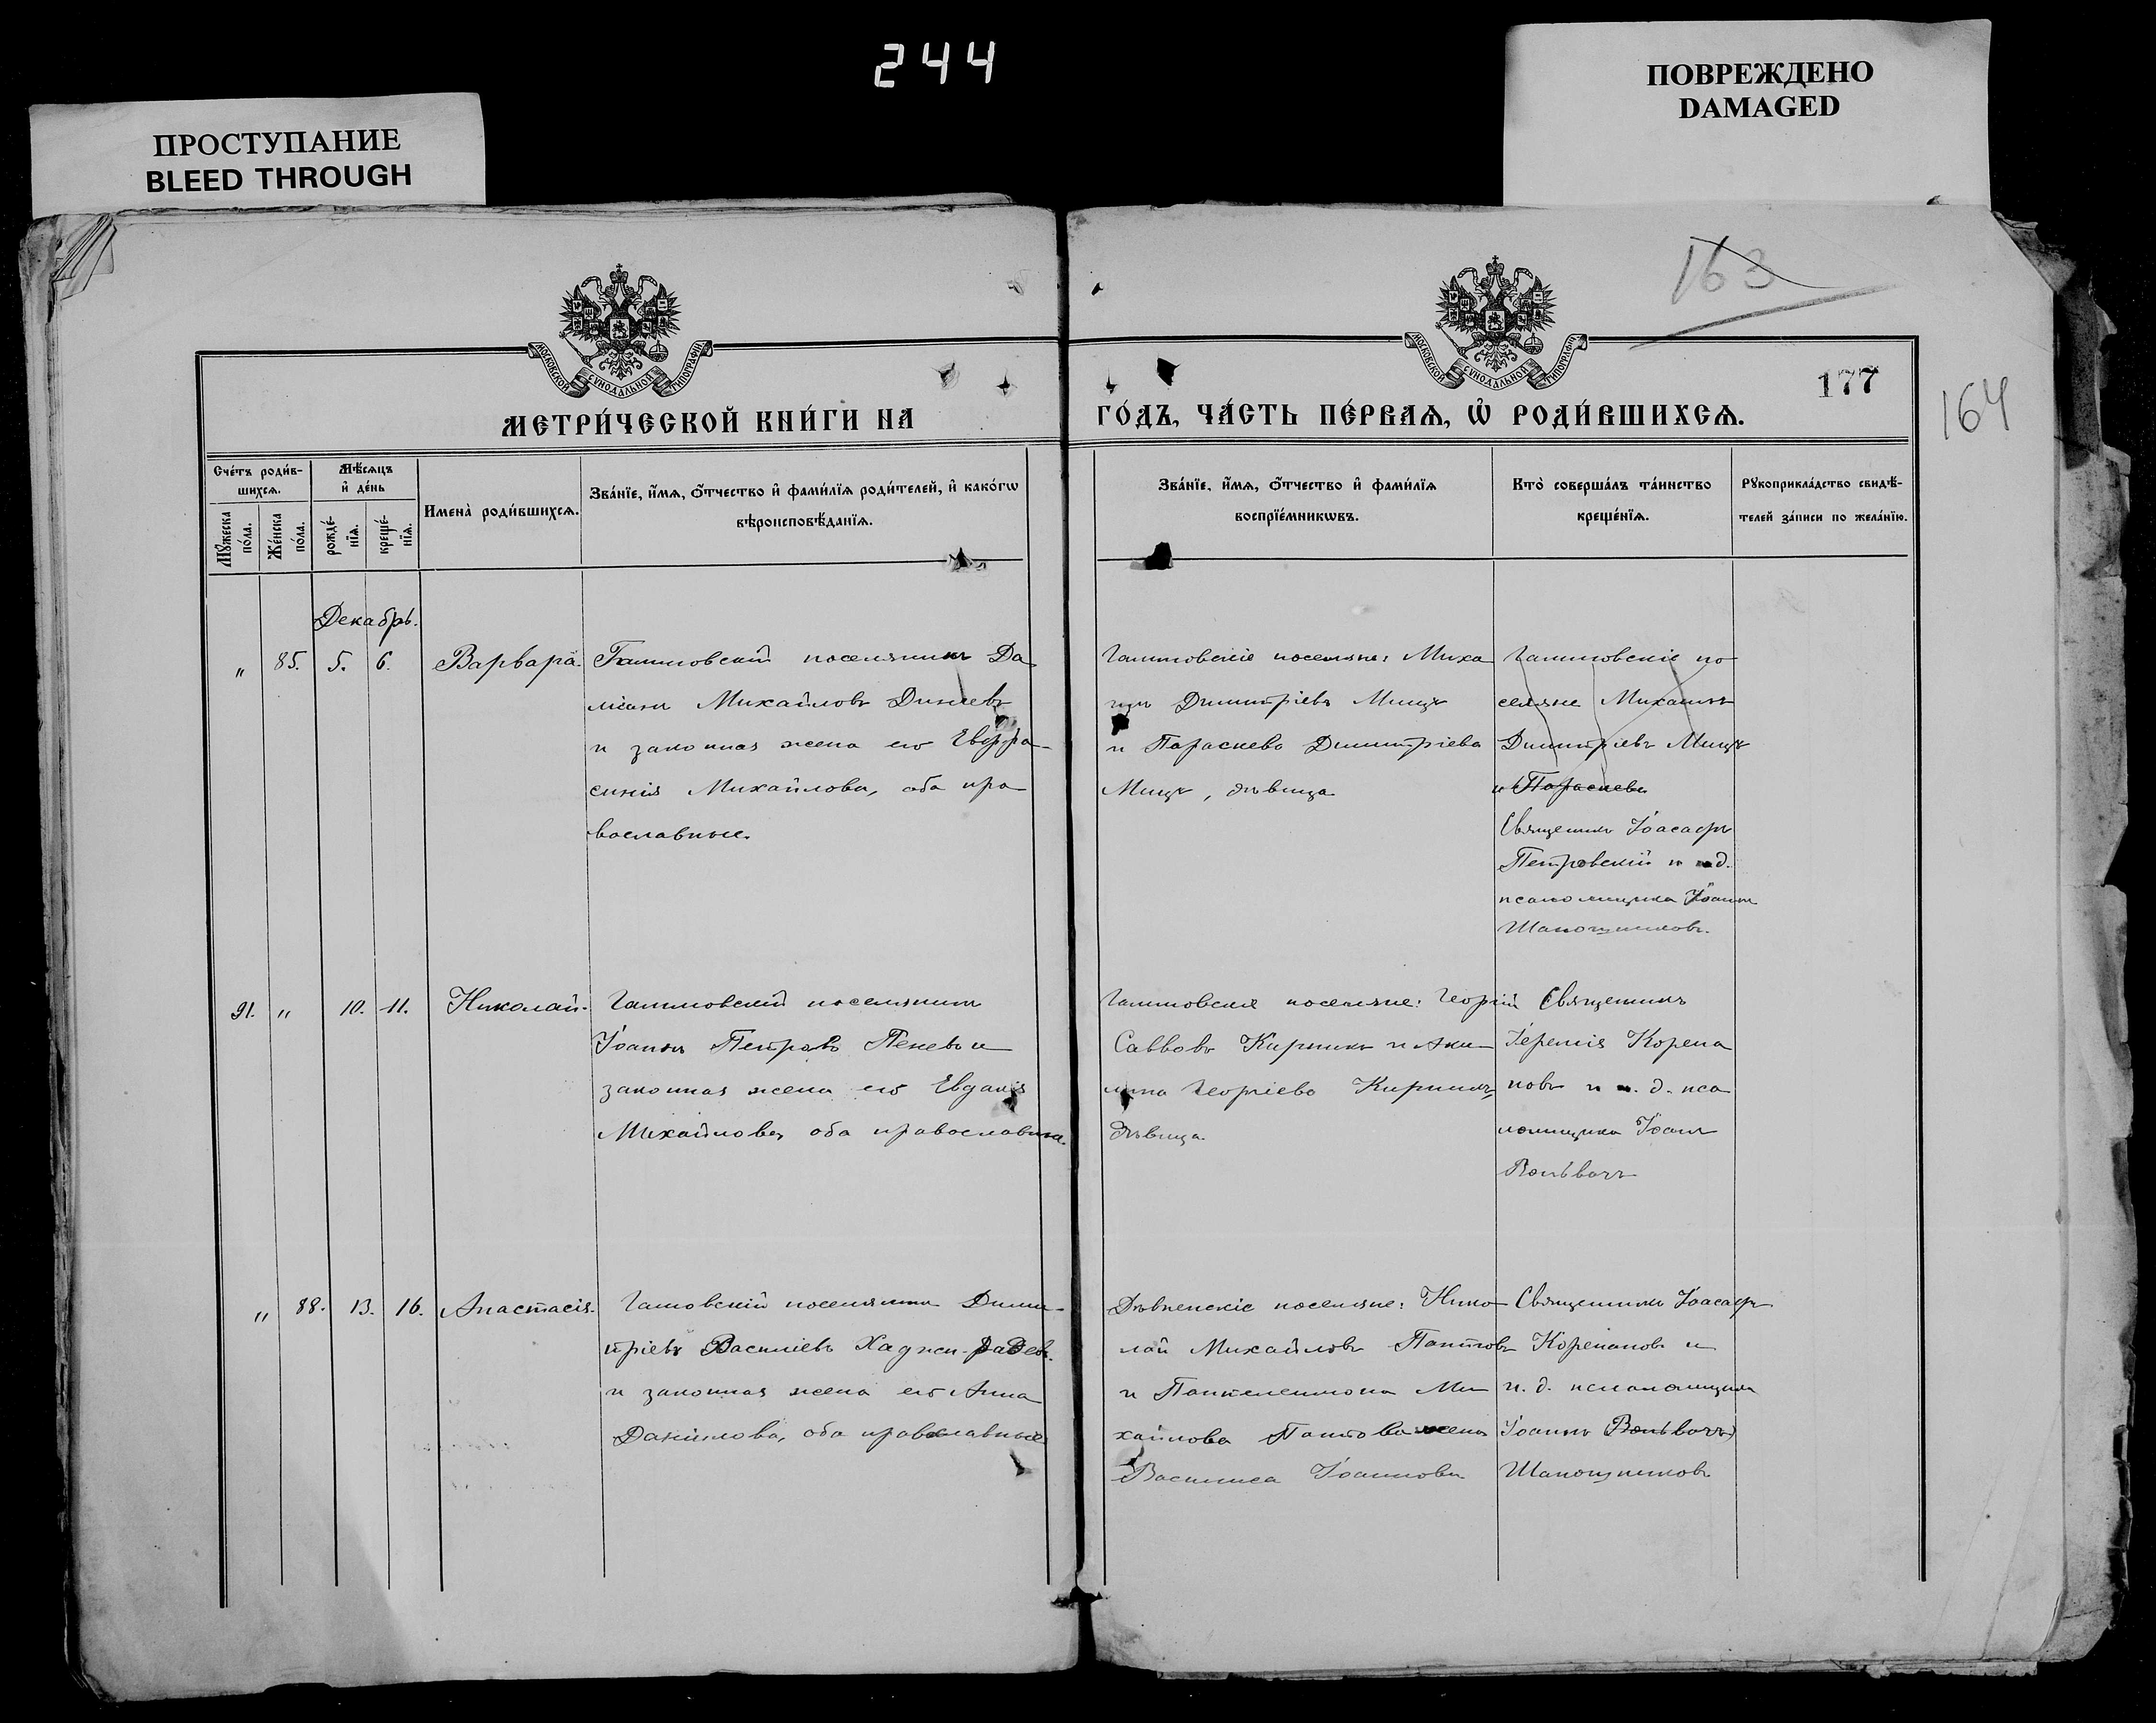 244
ПРОСТУПАНИЕ
BLEED THROUGH
ПОВРЕЖДЕНО
DAMAGED
163
177
164
МОСКОВСКОЙ СѴНОДАЛЬНОЙ ТИПОГРАФІИ
МОСКОВСКОЙ СѴНОДАЛЬНОЙ ТИПОГРАФІИ
МЕТРИ́ЧЕСКОЙ КНИ́ГИ НА
ГО́ДЪ, ЧА́СТЬ ПЕ́РВАѦ, Ѡ҆ РОДИ́ВШИХСѦ.
Сче́тъ роди́в-
шихсѧ.
Мꙋ́жеска
по́ла.
Же́нска
по́ла.
Мѣ́сѧцъ
и҆ де́нь
рожде́-
нїѧ.
креще́-
нїѧ.
Имена̀ роди́вшихсѧ.
Зва́нїе, и҆́мѧ, ѻ҆́тчество и҆ фами́лїѧ роди́телей, и҆ како́гѡ
вѣроисповѣ́данїѧ.
Зва́нїе, и҆́мѧ, ѻ҆́тчество и҆ фами́лїѧ
воспрїе́мникѡвъ.
Кто̀ соверша́лъ та́инство
креще́нїѧ.
Рꙋкоприкла́дство свидѣ́-
телей за́писи по жела́нїю.
Декабрь.
" 85. 5. 6. Варвара.
поселянинъ Да
міанъ Михайловъ Динчевъ
и законная жена его Евфро-
синія Михайлова, оба пра
вославные.
поселяне: Миха
илъ Димитріевъ Мицъ
и Параскева Димитріева
Мицъ, дѣвица
по
селяне Михаилъ
Димитріевъ Мицъ
и Параскева
Священникъ Іоасафъ
Петровскій и и.д.
псаломщика Іоаннъ
Шапошниковъ.
91. " 10. 11. Николай.
поселянинъ
Іоаннъ Петровъ Пеневъ и
законная жена его Евдокія
Михайлова, оба православные.
поселяне: Георгій
Саввовъ Кирчикъ и Аки
лина Георгіева
дѣвица.
Священникъ
Іеремія Корепа
новъ и и. д. пса
ломщика Іоаннъ
" 88. 13. 16. Анастасія.
поселянинъ Дими-
трій Василіевъ Хаджи-Радевъ.
и законная жена его Анна
Даніилова, оба православные
поселяне: Нико
лай Михайловъ Пантовъ
и Пантелеимона Ми
хайлова Пантова жена
Василиса Іоаннова
Священникъ Іоасафъ
Корепановъ и
и. д. псаломщика
Іоаннъ
Шапошниковъ